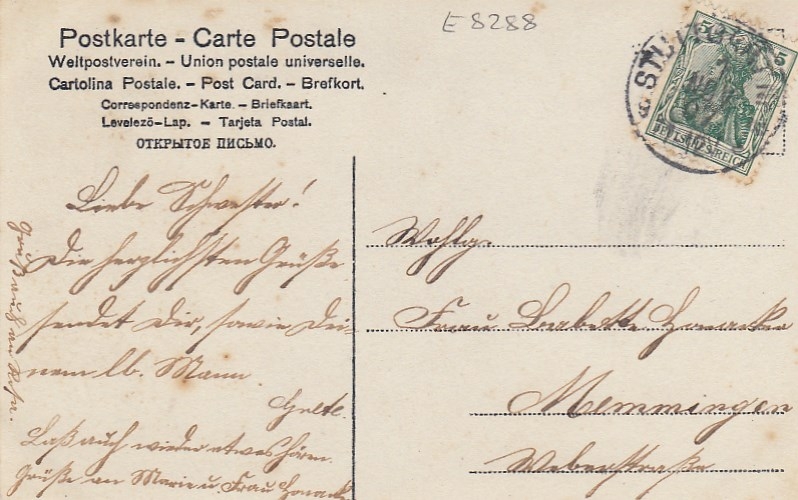 E 8288
Postkarte - Carte Postale
Weltpostverein. - Union postale universelle.
Cartolina Postale. - Post Card. - Brefkort.
Correspondenz-Karte. - Briefkaart.
Levelező-Lap. - Tarjeta Postal.
ОТКРЫТОЕ ПИСЬМО.
5 5
DEUTSCHES REICH
Liebe Schwester!
Die herzlichsten Grüße
sendet Dir, sowie Dei-
nem lb. Mann.
Grete.
Laß auch wieder etwas hören.
Grüße an Marie u. Frau
Gruß auch an
Wohlg.
Frau Babette
Memmingen
Weberstraße